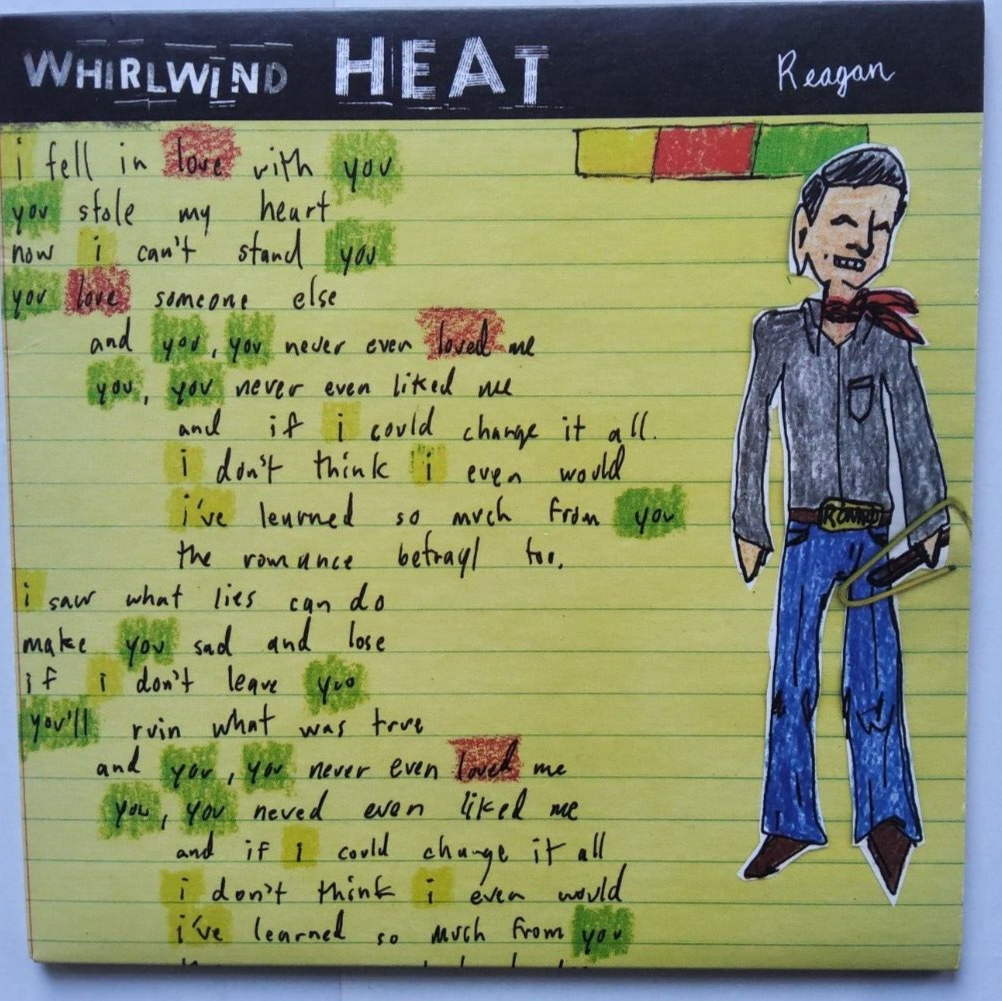 WHIRLWIND HEAT Reagan
i fell in love with you
you stole my heart
now i can't stand you
you love someone else
and you, you never even loved me
you, you never even liked me
and if i could change it all.
i don't think i even would
i've learned so much from you
the romance betrayl too.
i saw what lies can do
make you sad and lose
if i don't leave you
you'll ruin what was true
and you, you never even loved me
you, you neved even liked me
and if i could change it all
i don't think i even would
i've learned so much from you